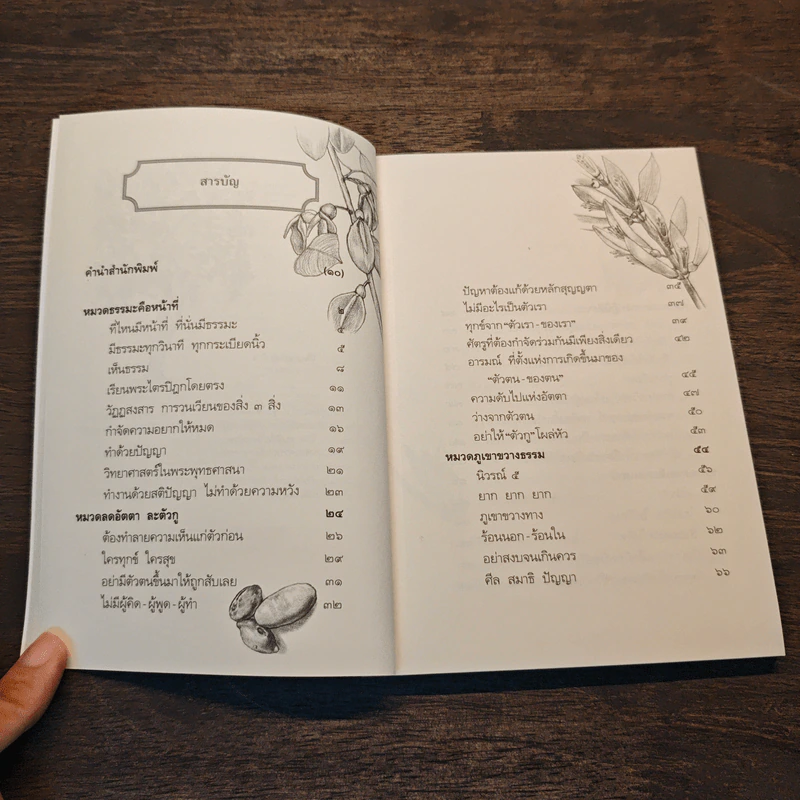 สารบัญ
คำนำสำนักพิมพ์ (๑๐)
หมวดธรรมะคือหน้าที่ ๒
ที่ไหนมีหน้าที่ ที่นั่นมีธรรมะ ๔
มีธรรมะทุกวินาที ทุกกระเบียดนิ้ว ๕
เห็นธรรม ๘
เรียนพระไตรปิฎกโดยตรง ๑๑
วัฏฏสงสาร การวนเวียนของสิ่ง ๓ สิ่ง ๑๓
กำจัดความอยากให้หมด ๑๖
ทำด้วยปัญญา ๑๙
วิทยาศาสตร์ในพระพุทธศาสนา ๒๑
ทำงานด้วยสติปัญญา ไม่ทำด้วยความหวัง ๒๓
หมวดลดอัตตา ละตัวกู ๒๔
ต้องทำลายความเห็นแก่ตัวก่อน ๒๖
ใครทุกข์ ใครสุข ๒๙
อย่ามีตัวตนขึ้นมาให้ถูกสับเลย ๓๑
ไม่มีผู้คิด - ผู้พูด - ผู้ทำ ๓๒
ปัญหาต้องแก้ด้วยหลักสุญญตา ๓๕
ไม่มีอะไรเป็นตัวเรา ๓๗
ทุกข์จาก "ตัวเรา - ของเรา" ๓๙
ศัตรูที่ต้องกำจัดร่วมกันมีเพียงสิ่งเดียว ๔๒
อารมณ์ ที่ตั้งแห่งการเกิดขึ้นมาของ
"ตัวตน - ของตน" ๔๕
ความดับไปแห่งอัตตา ๔๗
ว่างจากตัวตน ๕๐
อย่าให้ "ตัวกู" โผล่หัว ๕๓
หมวดภูเขาขวางธรรม ๕๔
นิวรณ์ ๕ ๕๖
ยาก ยาก ยาก ๕๙
ภูเขาขวางทาง ๖๐
ร้อนนอก - ร้อนใน ๖๒
อย่าสงบจนเกินควร ๖๓
ศีล สมาธิ ปัญญา ๖๖